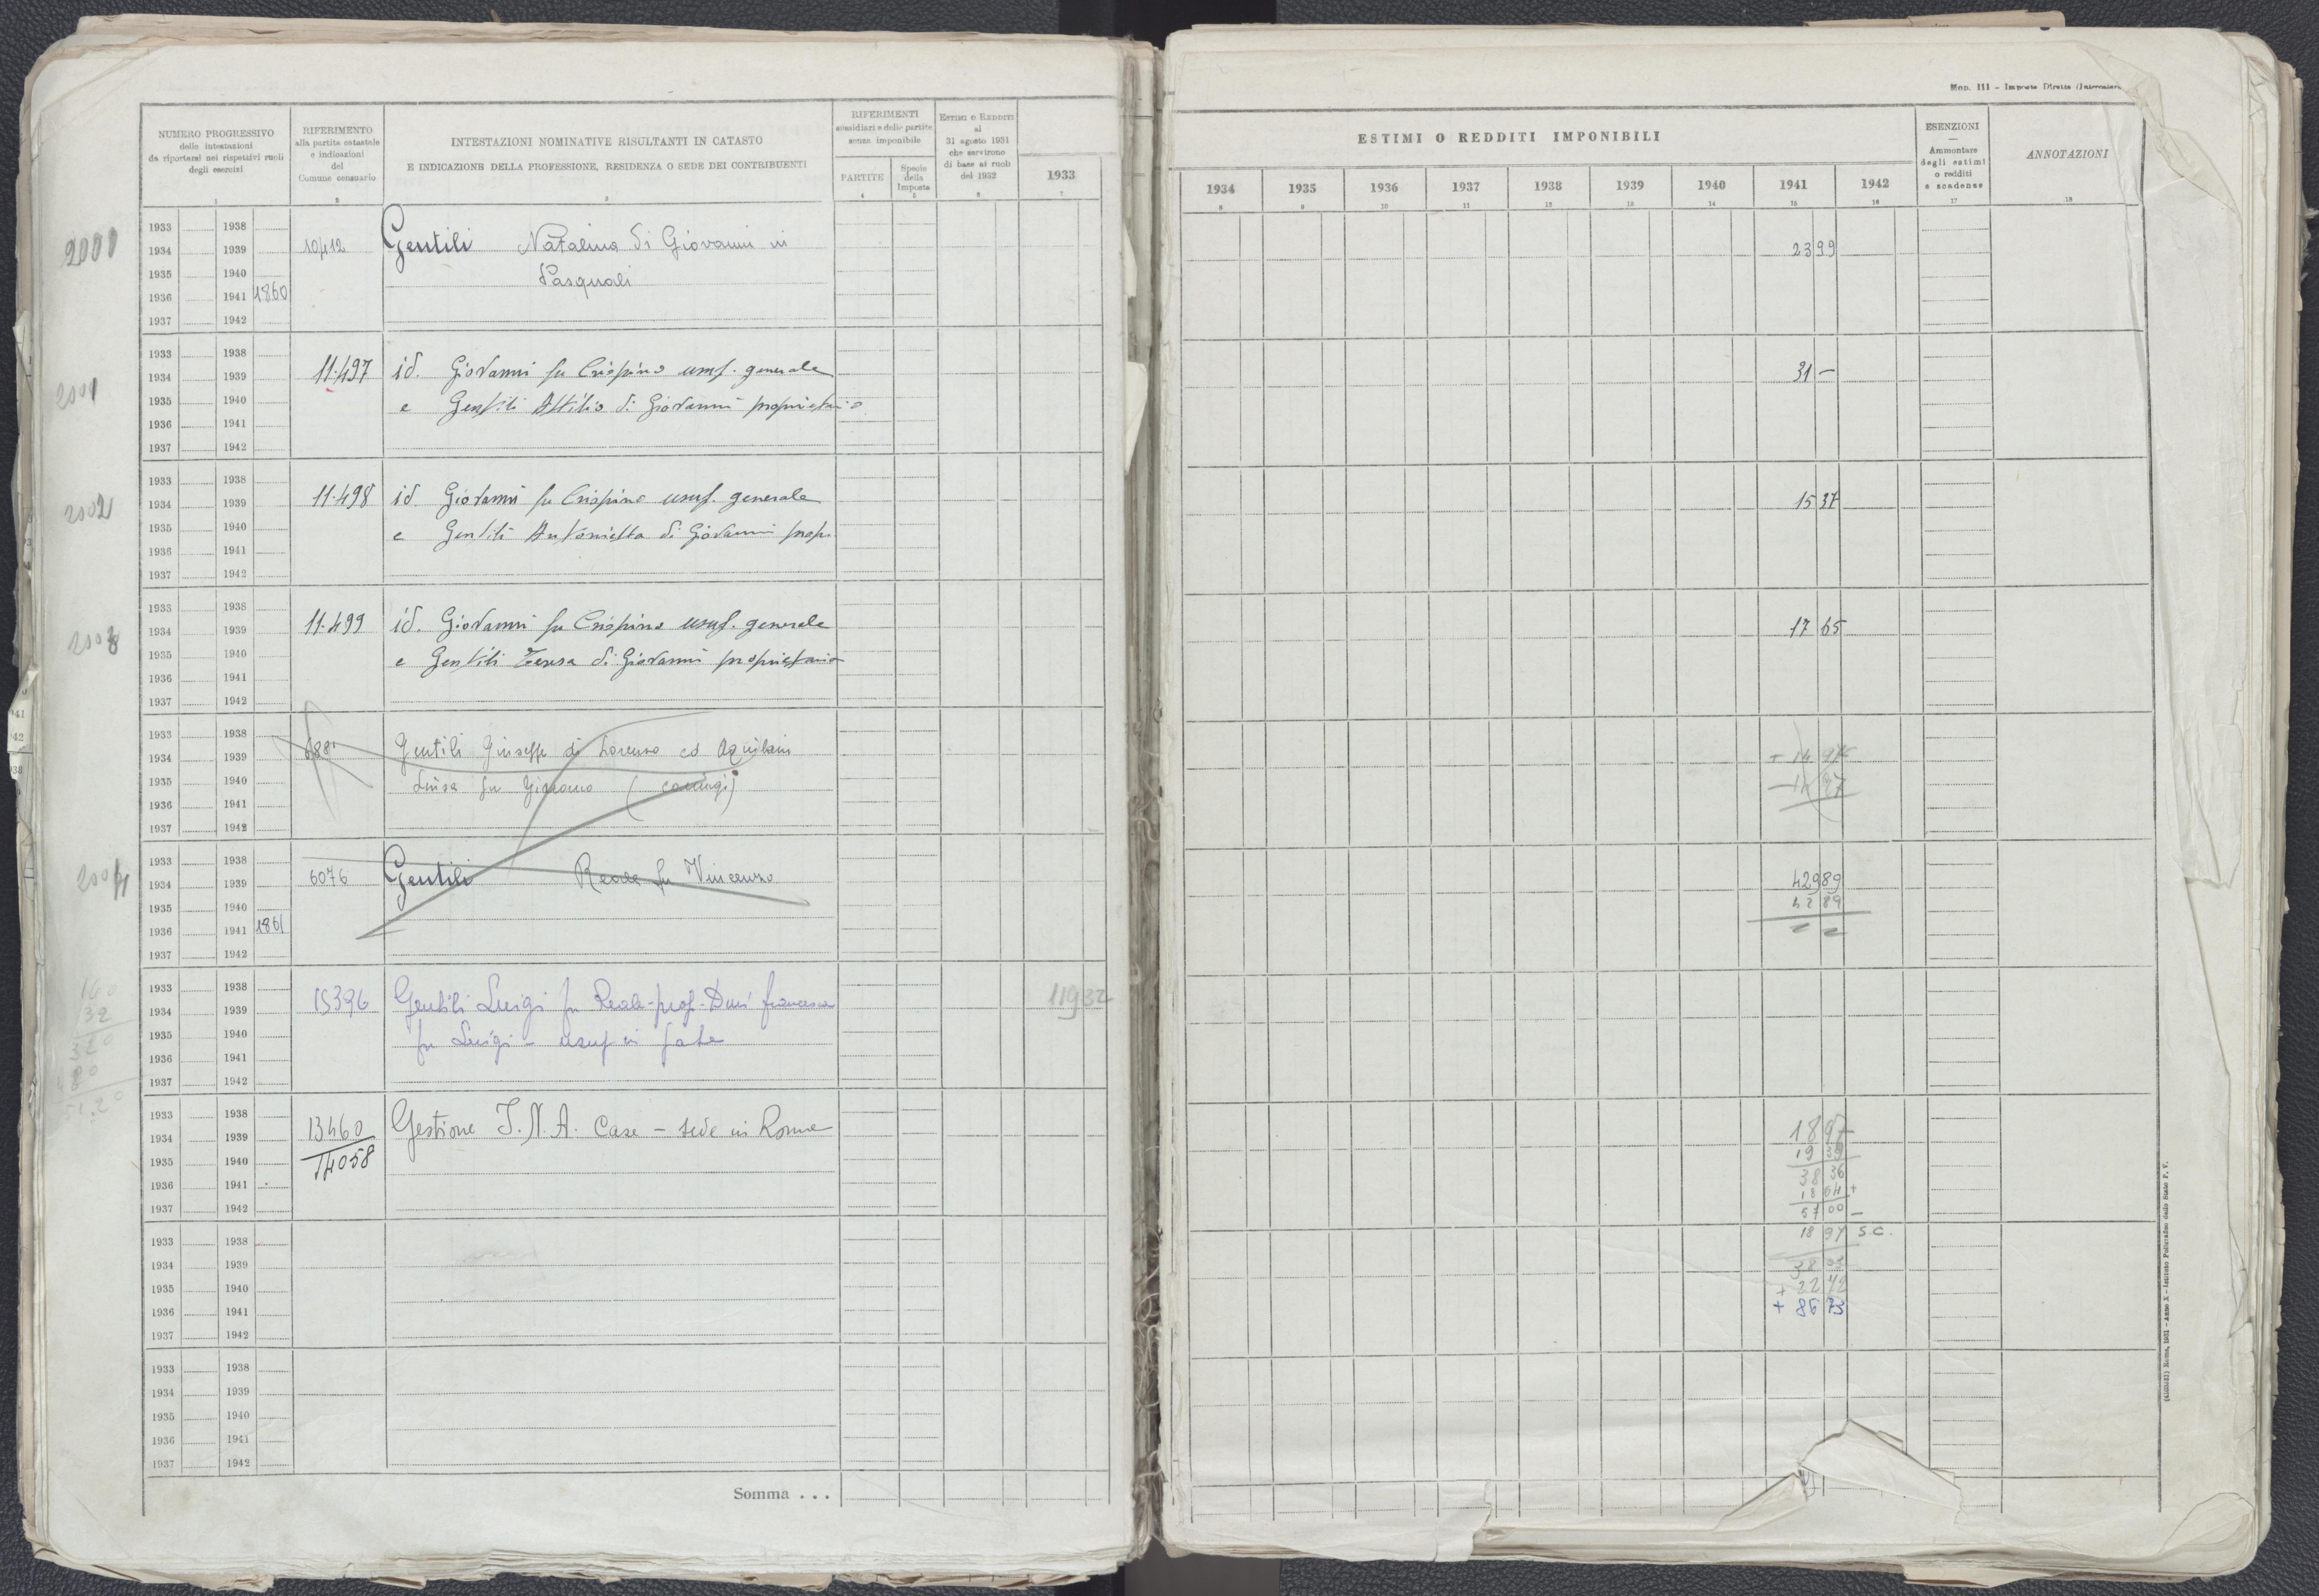 Mod. 111 - Imposte Dirette
NUMERO PROGRESSIVO
delle intestazioni
da riportarsi nei rispettivi ruoli
degli esercizi
RIFERIMENTO
alla partita catastale
e indicazioni
del
Comune censuario
INTESTAZIONI NOMINATIVE RISULTANTI IN CATASTO
E INDICAZIONE DELLA PROFESSIONE, RESIDENZA O SEDE DEI CONTRIBUENTI
RIFERIMENTI
sussidiari e delle partite
senza imponibile
PARTITE
Specie
della
Imposta
ESTIMI O REDDITI
al
31 agosto 1931
che servirono
di base ai ruoli
del 1932
1933
ESTIMI O REDDITI IMPONIBILI
1934 1935 1936 1937 1938 1939 1940 1941 1942
ESENZIONI
Ammontare
degli estimi
o redditi
e scadenze
ANNOTAZIONI
1 2 3 4 5 6 7 8 9 10 11 12 13 14 15 16 17 18
1933 1938
2000 1934 1939 10412 Gentili Natalina di Giovanni in 23 99
1935 1940 Pasquali
1936 1941 1860
1937 1942
1933 1938
2001 1934 1939 11.497 id. Giovanni fu Crispino usuf. generale 31 -
1935 1940 e Gentili Attilio di Giovanni proprietario
1936 1941
1937 1942
1933 1938
2002 1934 1939 11.498 id Giovanni fu Crispino usuf. generale 15 37
1935 1940 e Gentili Antonietta di Giovanni prop.
1936 1941
1937 1942
1933 1938
2003 1934 1939 11.499 id. Giovanni fu Crispino usuf. generale 17 65
1935 1940 e Gentili Teresa di Giovanni proprietaria
1936 1941
1937 1942
1933 1938
1934 1939 Gentili Giuseppe di Lorenzo ed Aquilani
1935 1940 Luisa fu Giacomo (coniugi)
1936 1941
1937 1942
1933 1938
2004 1934 1939 6076 Gentili Reale fu Vincenzo 429 89
1935 1940
1936 1941 1861
1937 1942
1933 1938
1934 1939 15396 Gentili Luigi fu Reale - prop. francesca 119 32
1935 1940 fu Luigi - usuf in
1936 1941
1937 1942
160
32
320
480
51.20
1933 1938
1934 1939 13460 Gestione I.N.A. Case - sede in Roma 18 97
1935 1940 14058 19 39
1936 1941 38 36
1937 1942 18 64 +
57 00 -
1933 1938 18 97 S.C.
1934 1939 38 03
1935 1940 +
1936 1941 + 86 73
1937 1942
1933 1938
1934 1939
1935 1940
1936 1941
1937 1942
Somma . . .